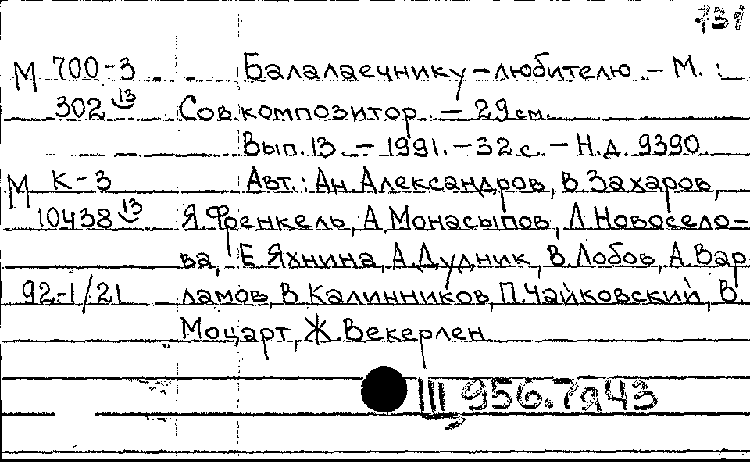 731
М 700-3 Балалаечнику-любителю. - М. :
302 13 Сов.композитор. - 29 см.
Вып. 13. - 1991. - 32 с. - Н.д. 9390.
М К-3 Авт.: Ан. Александров, В. Захаров,
10438 13 Я. Френкель, А. Монасыпов, Л. Новосело-
ва, Е. Яхнина, А. Дудник, В. Лобов, А. Вар-
92-1/21 ламов, В. Калинников, П. Чайковский, В.
Моцарт, Ж. Векерлен
III 956.7я43